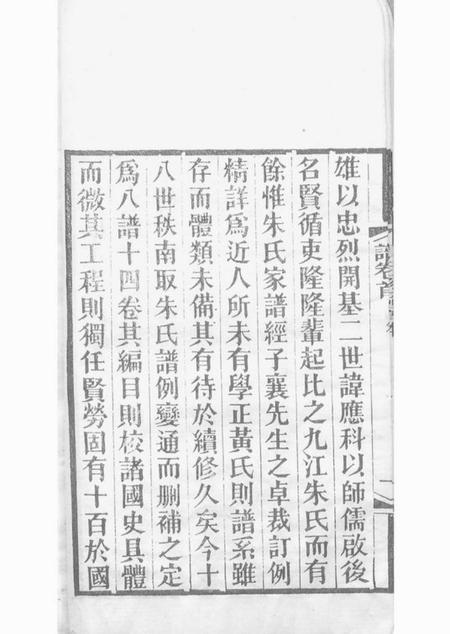 雄以忠烈開基二世諱應科以師儒啟後
名賢循吏隆隆輩起比之九江朱氏而有
餘惟朱氏家譜經子襄先生之卓裁訂例
精詳爲近人所未有學正黃氏則譜系雖
存而體類未備其有待於續修久矣今十
八世秩南取朱氏譜例變通而刪補之定
爲八譜十四卷其編目則校諸國史具體
而微其工程則獨任賢勞固有十百於國